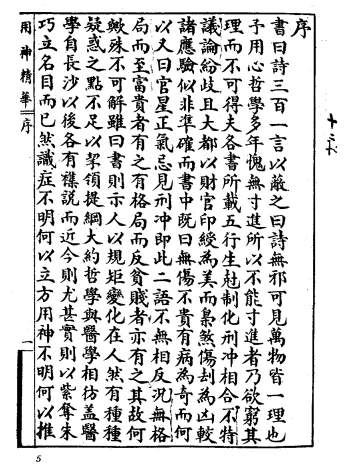 序
書曰詩三百一言以蔽之曰詩無邪可見萬物皆一理也
予用心哲學多年愧無寸進所以不能寸進者乃欲窮其
理而不可得夫各書所載五行生尅制化刑冲相合不特
議論紛歧且大都以財官印綬為美而梟煞傷刦為凶較
諸應驗似非準確而書中既曰無傷不貴有病為奇而何
以又曰官星正氣忌見刑冲即此二語不無相反況無格
局而至富貴者有之有格局而反貧賤者亦有之其故何
歟殊不可解雖曰書則示人以規矩變化在人然有種種
疑惑之點不足以挈領提綱大約哲學與醫學相彷盖醫
學自長沙以後各有襍說而近今則尤甚實則以紫奪朱
巧立名目而已然識症不明何以立方用神不明何以推
用神精華
序
一
5